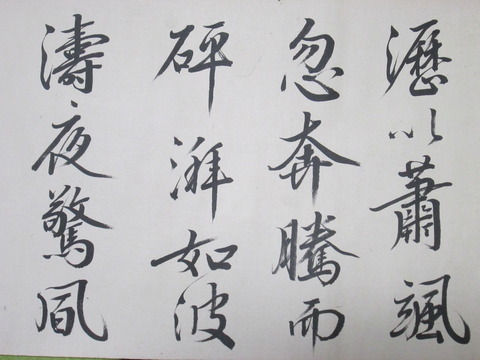 瀝以蕭颯
忽奔騰而
砰湃如波
濤夜驚風